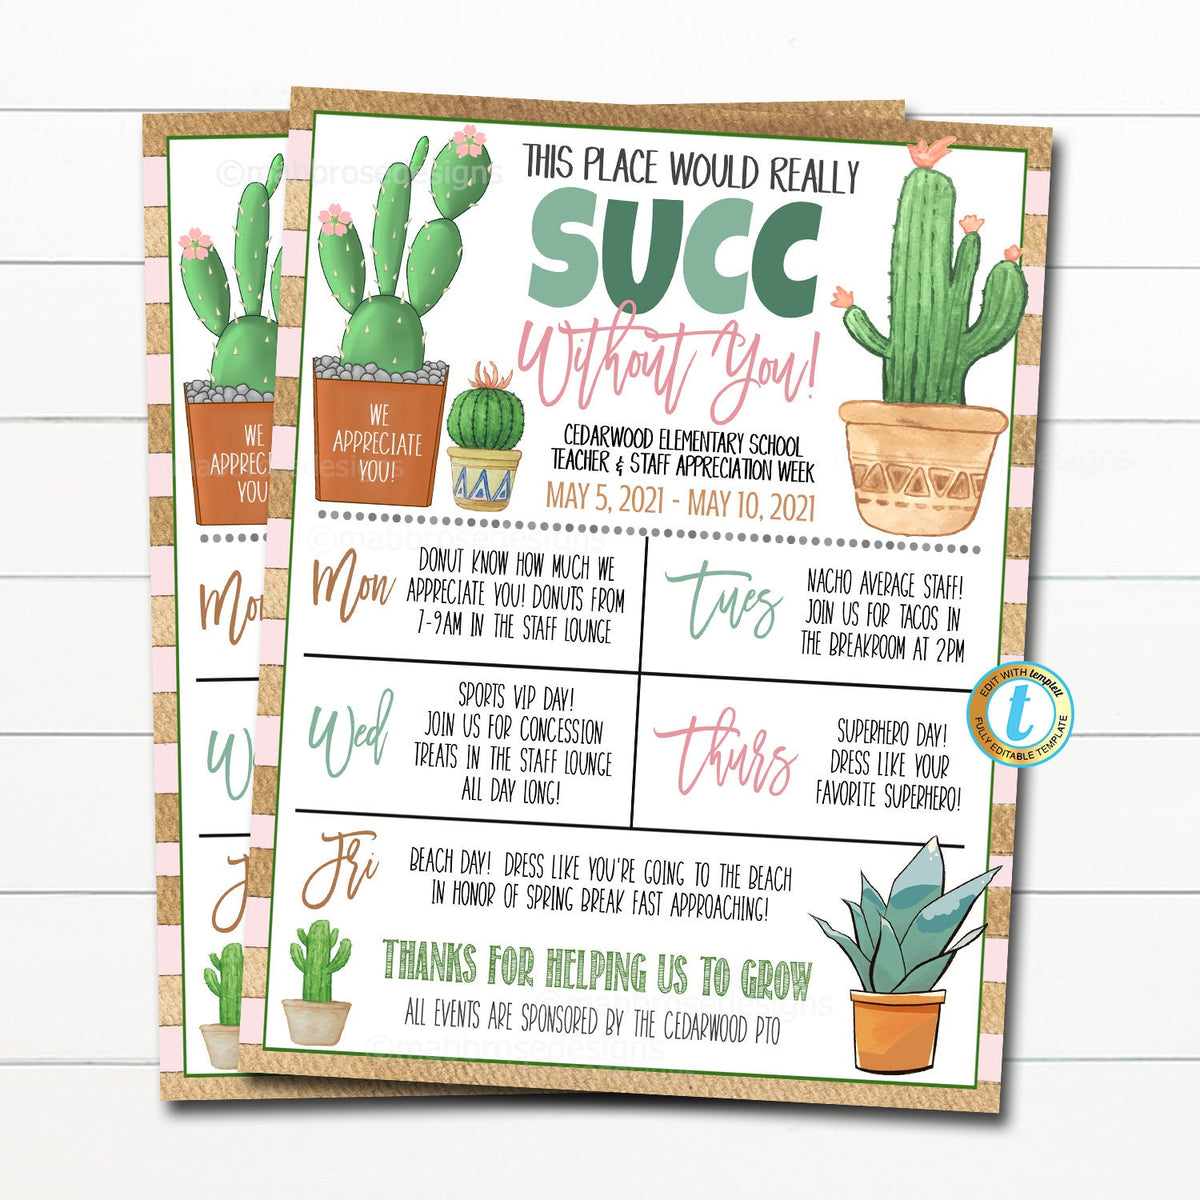 THIS PLACE WOULD REALLY
SUCC
Without You!
CEDARWOOD ELEMENTARY SCHOOL
TEACHER & STAFF APPRECIATION WEEK
MAY 5, 2021 - MAY 10, 2021
WE
APPRECIATE
YOU!
Mon
DONUT KNOW HOW MUCH WE
APPRECIATE YOU! DONUTS FROM
7-9AM IN THE STAFF LOUNGE
Tues
NACHO AVERAGE STAFF!
JOIN US FOR TACOS IN
THE BREAKROOM AT 2PM
Wed
SPORTS VIP DAY!
JOIN US FOR CONCESSION
TREATS IN THE STAFF LOUNGE
ALL DAY LONG!
Thurs
SUPERHERO DAY!
DRESS LIKE YOUR
FAVORITE SUPERHERO!
Fri
BEACH DAY! DRESS LIKE YOU'RE GOING TO THE BEACH
IN HONOR OF SPRING BREAK FAST APPROACHING!
THANKS FOR HELPING US TO GROW
ALL EVENTS ARE SPONSORED BY THE CEDARWOOD PTO
EDIT WITH templett
t
FULLY EDITABLE TEMPLATE
WE
APPRECI
YOU
Mo
W
©mabbrosedesigns
©mabbrosedesigns
©mabbrosedesigns